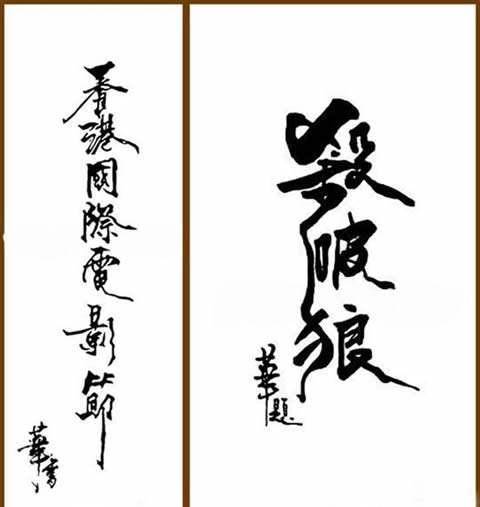 香港國際電影節
華
殺破狼
華題